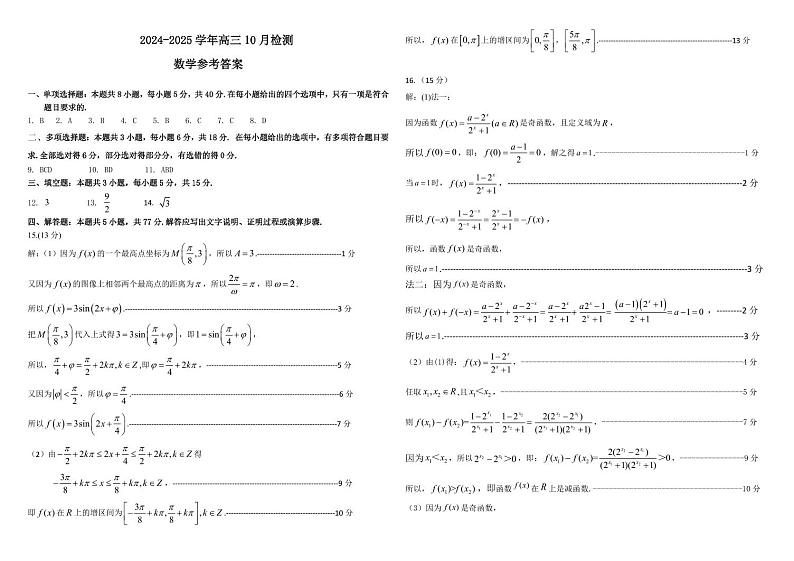 2024-2025 学年高三 10 月检测
数学参考答案
一、单项选择题：本题共 8 小题，每小题 5 分，共 40 分.在每小题给出的四个选项中，只有一项是符合
题目要求的.
1. B 2. A 3. B 4. C 5. B 6. C 7. C 8. D
二、多项选择题：本题共 3 小题，每小题 6 分，共 18 分. 在每小题给出的选项中，有多项符合题目要
求.全部选对得 6 分，部分选对得部分分，有选错的得 0 分.
9. BCD 10. BD 11. ABD
三、填空题：本题共 3 小题，每小题 5 分，共 15 分.
12. 3 13. 9/2 14. √3
四、解答题：本题共 5 小题，共 77 分.解答应写出文字说明、证明过程或演算步骤.
15.(13 分)
解：（1）因为 f(x) 的一个最高点坐标为 M(π/8,3)，所以 A=3.------1 分
又因为 f(x) 的图像上相邻两个最高点的距离为 π，所以 2π/ω=π，即 ω=2.
所以 f(x)=3sin(2x+φ).------3 分
把 M(π/8,3) 代入上式得 3=3sin(π/4+φ)，即1=sin(π/4+φ)，
所以，π/4+φ=π/2+2kπ,k∈Z ,即 φ=π/4+2kπ，------5 分
又因为 |φ|<π/2，所以 φ=π/4.------6 分
所以 f(x)=3sin(2x+π/4).------7 分
（2）由 -π/2+2kπ≤2x+π/4≤π/2+2kπ,k∈Z 得
-3π/8+kπ≤x≤π/8+kπ,k∈Z，------9 分
即 f(x) 在 R 上的增区间为 [-3π/8+kπ,π/8+kπ],k∈Z.------10 分
所以，f(x) 在 [0,π] 上的增区间为 [0,π/8]，[5π/8,π].------13 分
16.（15 分）
解：(1)法一：
因为函数 f(x)=(a-2^x)/(2^x+1)(a∈R) 是奇函数，且定义域为 R，
所以 f(0)=0，即：f(0)=(a-1)/2=0，解之得 a=1.------1 分
当 a=1 时，f(x)=(1-2^x)/(2^x+1)，------2 分
所以 f(-x)=(1-2^-x)/(2^-x+1)=(2^x-1)/(2^x+1)=-f(x)，
所以，函数 f(x) 是奇函数，
所以 a=1.------3 分
法二：因为 f(x) 是奇函数，
所以 f(x)+f(-x)=(a-2^x)/(2^x+1)+(a-2^-x)/(2^-x+1)=(a-2^x)/(2^x+1)+(a2^x-1)/(2^x+1)=(a-1)(2^x+1)/(2^x+1)=a-1=0 ，------2 分
所以 a=1.------3 分
（2）由(1)得：f(x)=(1-2^x)/(2^x+1)，------4 分
任取 x₁,x₂∈R ,且 x₁<x₂，------5 分
则 f(x₁)-f(x₂)=(1-2^x₁)/(2^x₁+1)-(1-2^x₂)/(2^x₂+1)=2(2^x₂-2^x₁)/((2^x₁+1)(2^x₂+1))，------7 分
因为 x₁<x₂，所以 2^x₂-2^x₁>0，即：f(x₁)-f(x₂)=2(2^x₂-2^x₁)/((2^x₁+1)(2^x₂+1))>0，------9 分
所以，f(x₁)>f(x₂)，即函数 f(x) 在 R 上是减函数.------10 分
（3）因为 f(x) 是奇函数，